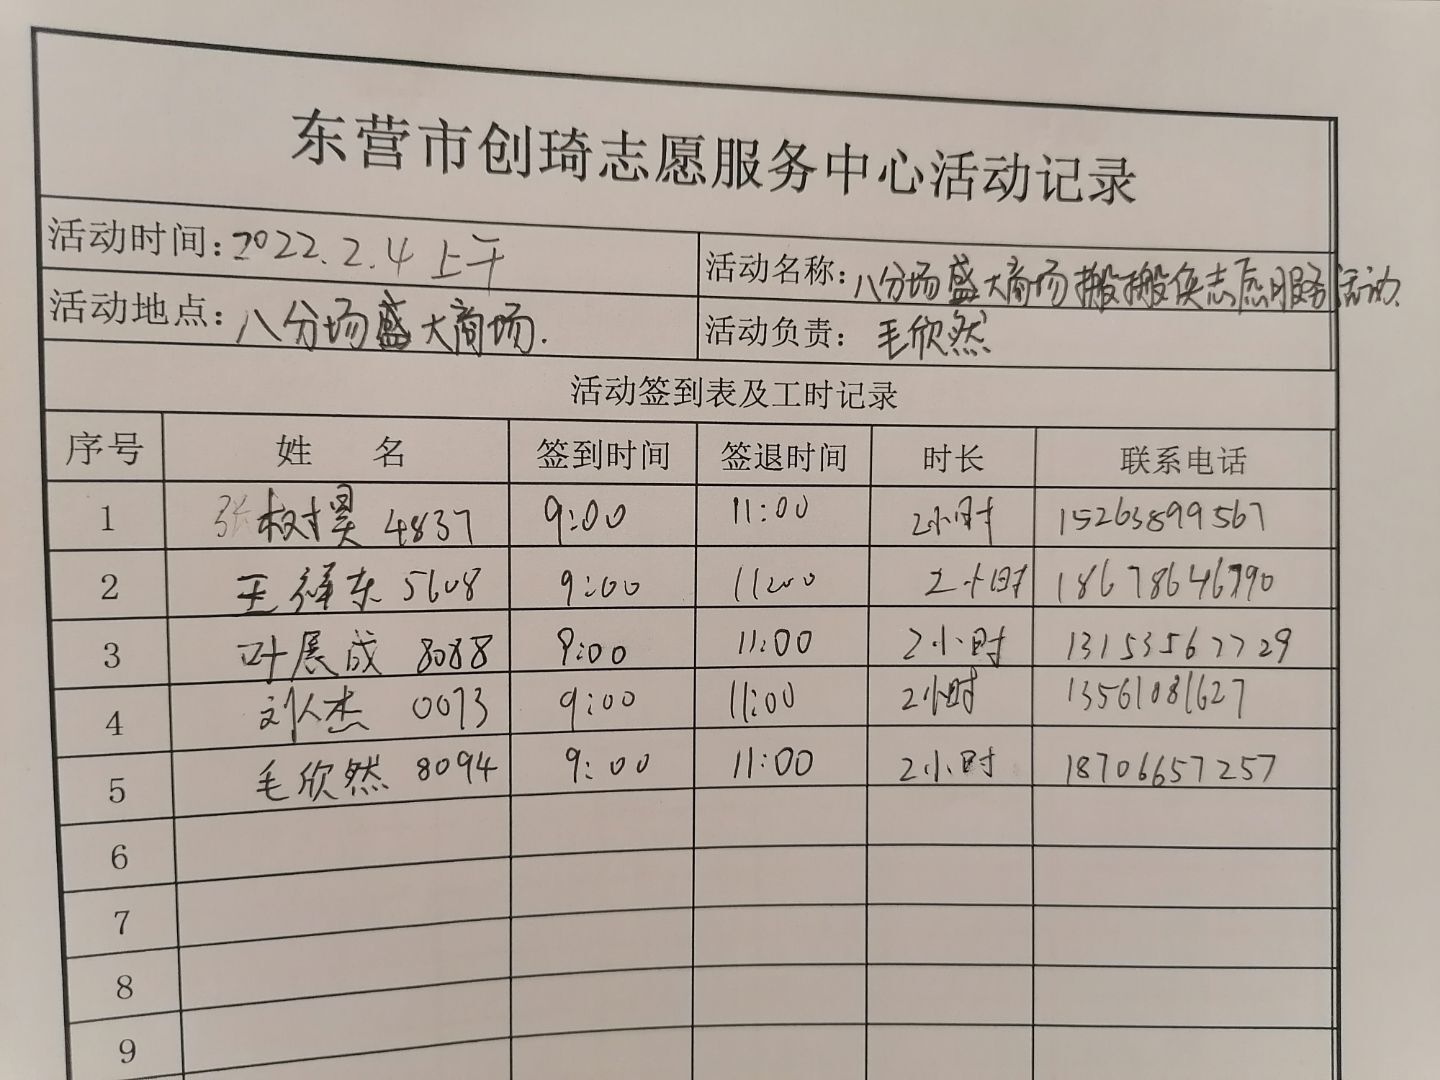 东营市创琦志愿服务中心活动记录
活动时间:2022.2.4 上午
活动名称:八分场盛大商场搬搬侠志愿服务活动.
活动地点:八分场盛大商场.
活动负责:毛欣然
活动签到表及工时记录
序号 姓 名 签到时间 签退时间 时长 联系电话
1 张树昊 4837 9:00 11:00 2小时 15263899567
2 王泽东 5608 9:00 11:00 2小时 18678646790
3 叶展成 8088 9:00 11:00 2小时 13153567729
4 刘人杰 0073 9:00 11:00 2小时 13561081627
5 毛欣然 8094 9:00 11:00 2小时 18706657257
6
7
8
9